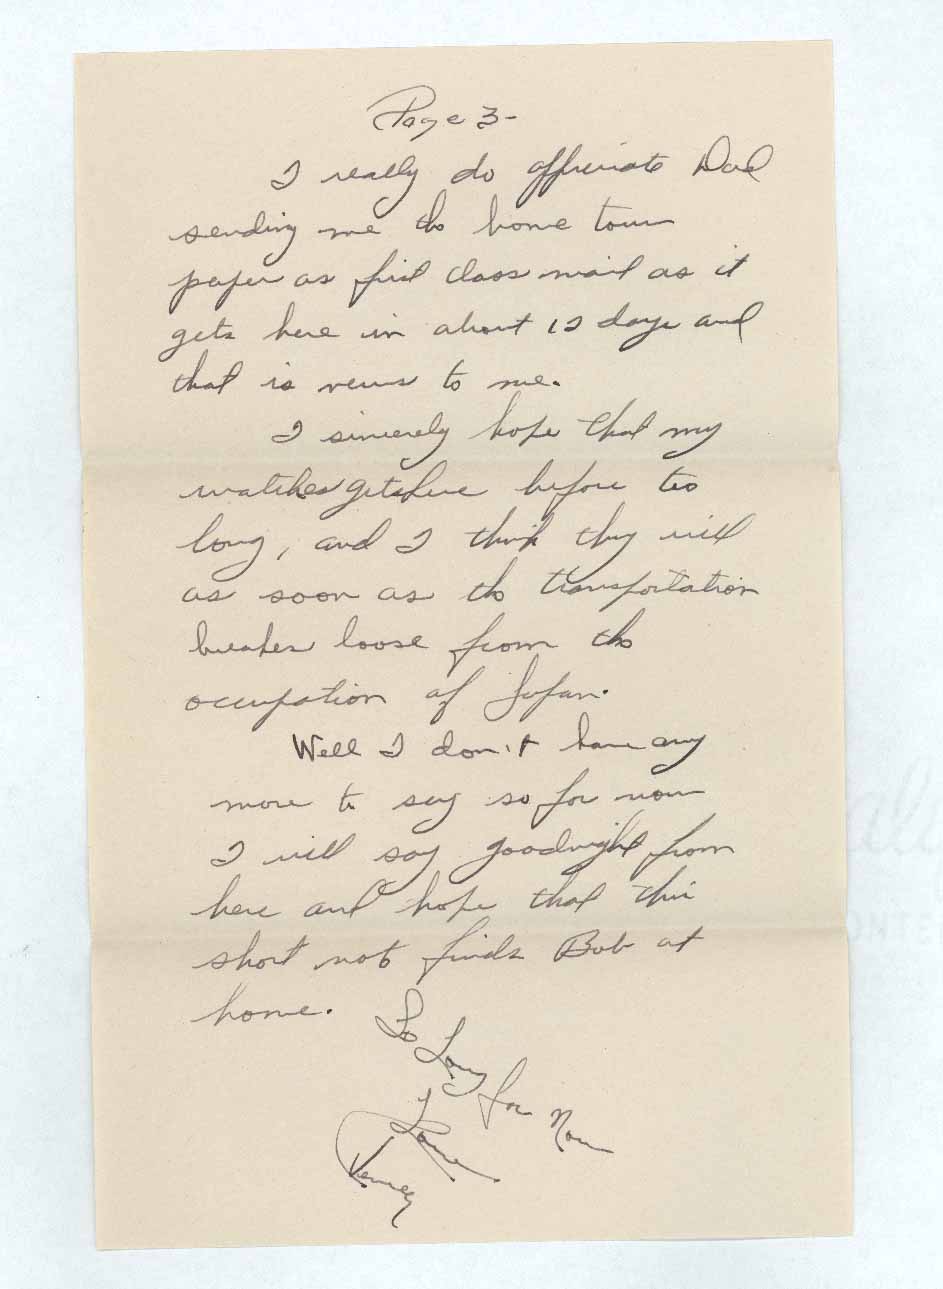 Page 3-
I really do appreciate Dad
sending me the home town
paper as first class mail as it
gets here in about 12 days and
that is news to me.
I sincerely hope that my
watches gets here before too
long, and I think they will
as soon as the transportation
breakes loose from the
occupation of Japan.
Well I don't have any
more to say so for now
I will say goodnight from
here and hope that this
short note finds Bob at
home.
So Long for Now
Love